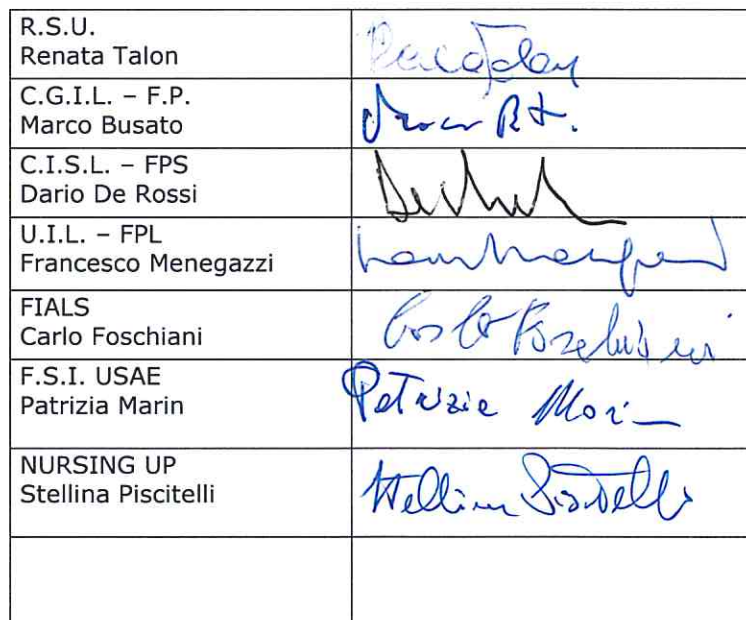 R.S.U.
Renata Talon
C.G.I.L. – F.P.
Marco Busato
C.I.S.L. – FPS
Dario De Rossi
U.I.L. – FPL
Francesco Menegazzi
FIALS
Carlo Foschiani
Carlo Foschiani
F.S.I. USAE
Patrizia Marin
Patrizia Marin
NURSING UP
Stellina Piscitelli
Stellina Piscitelli